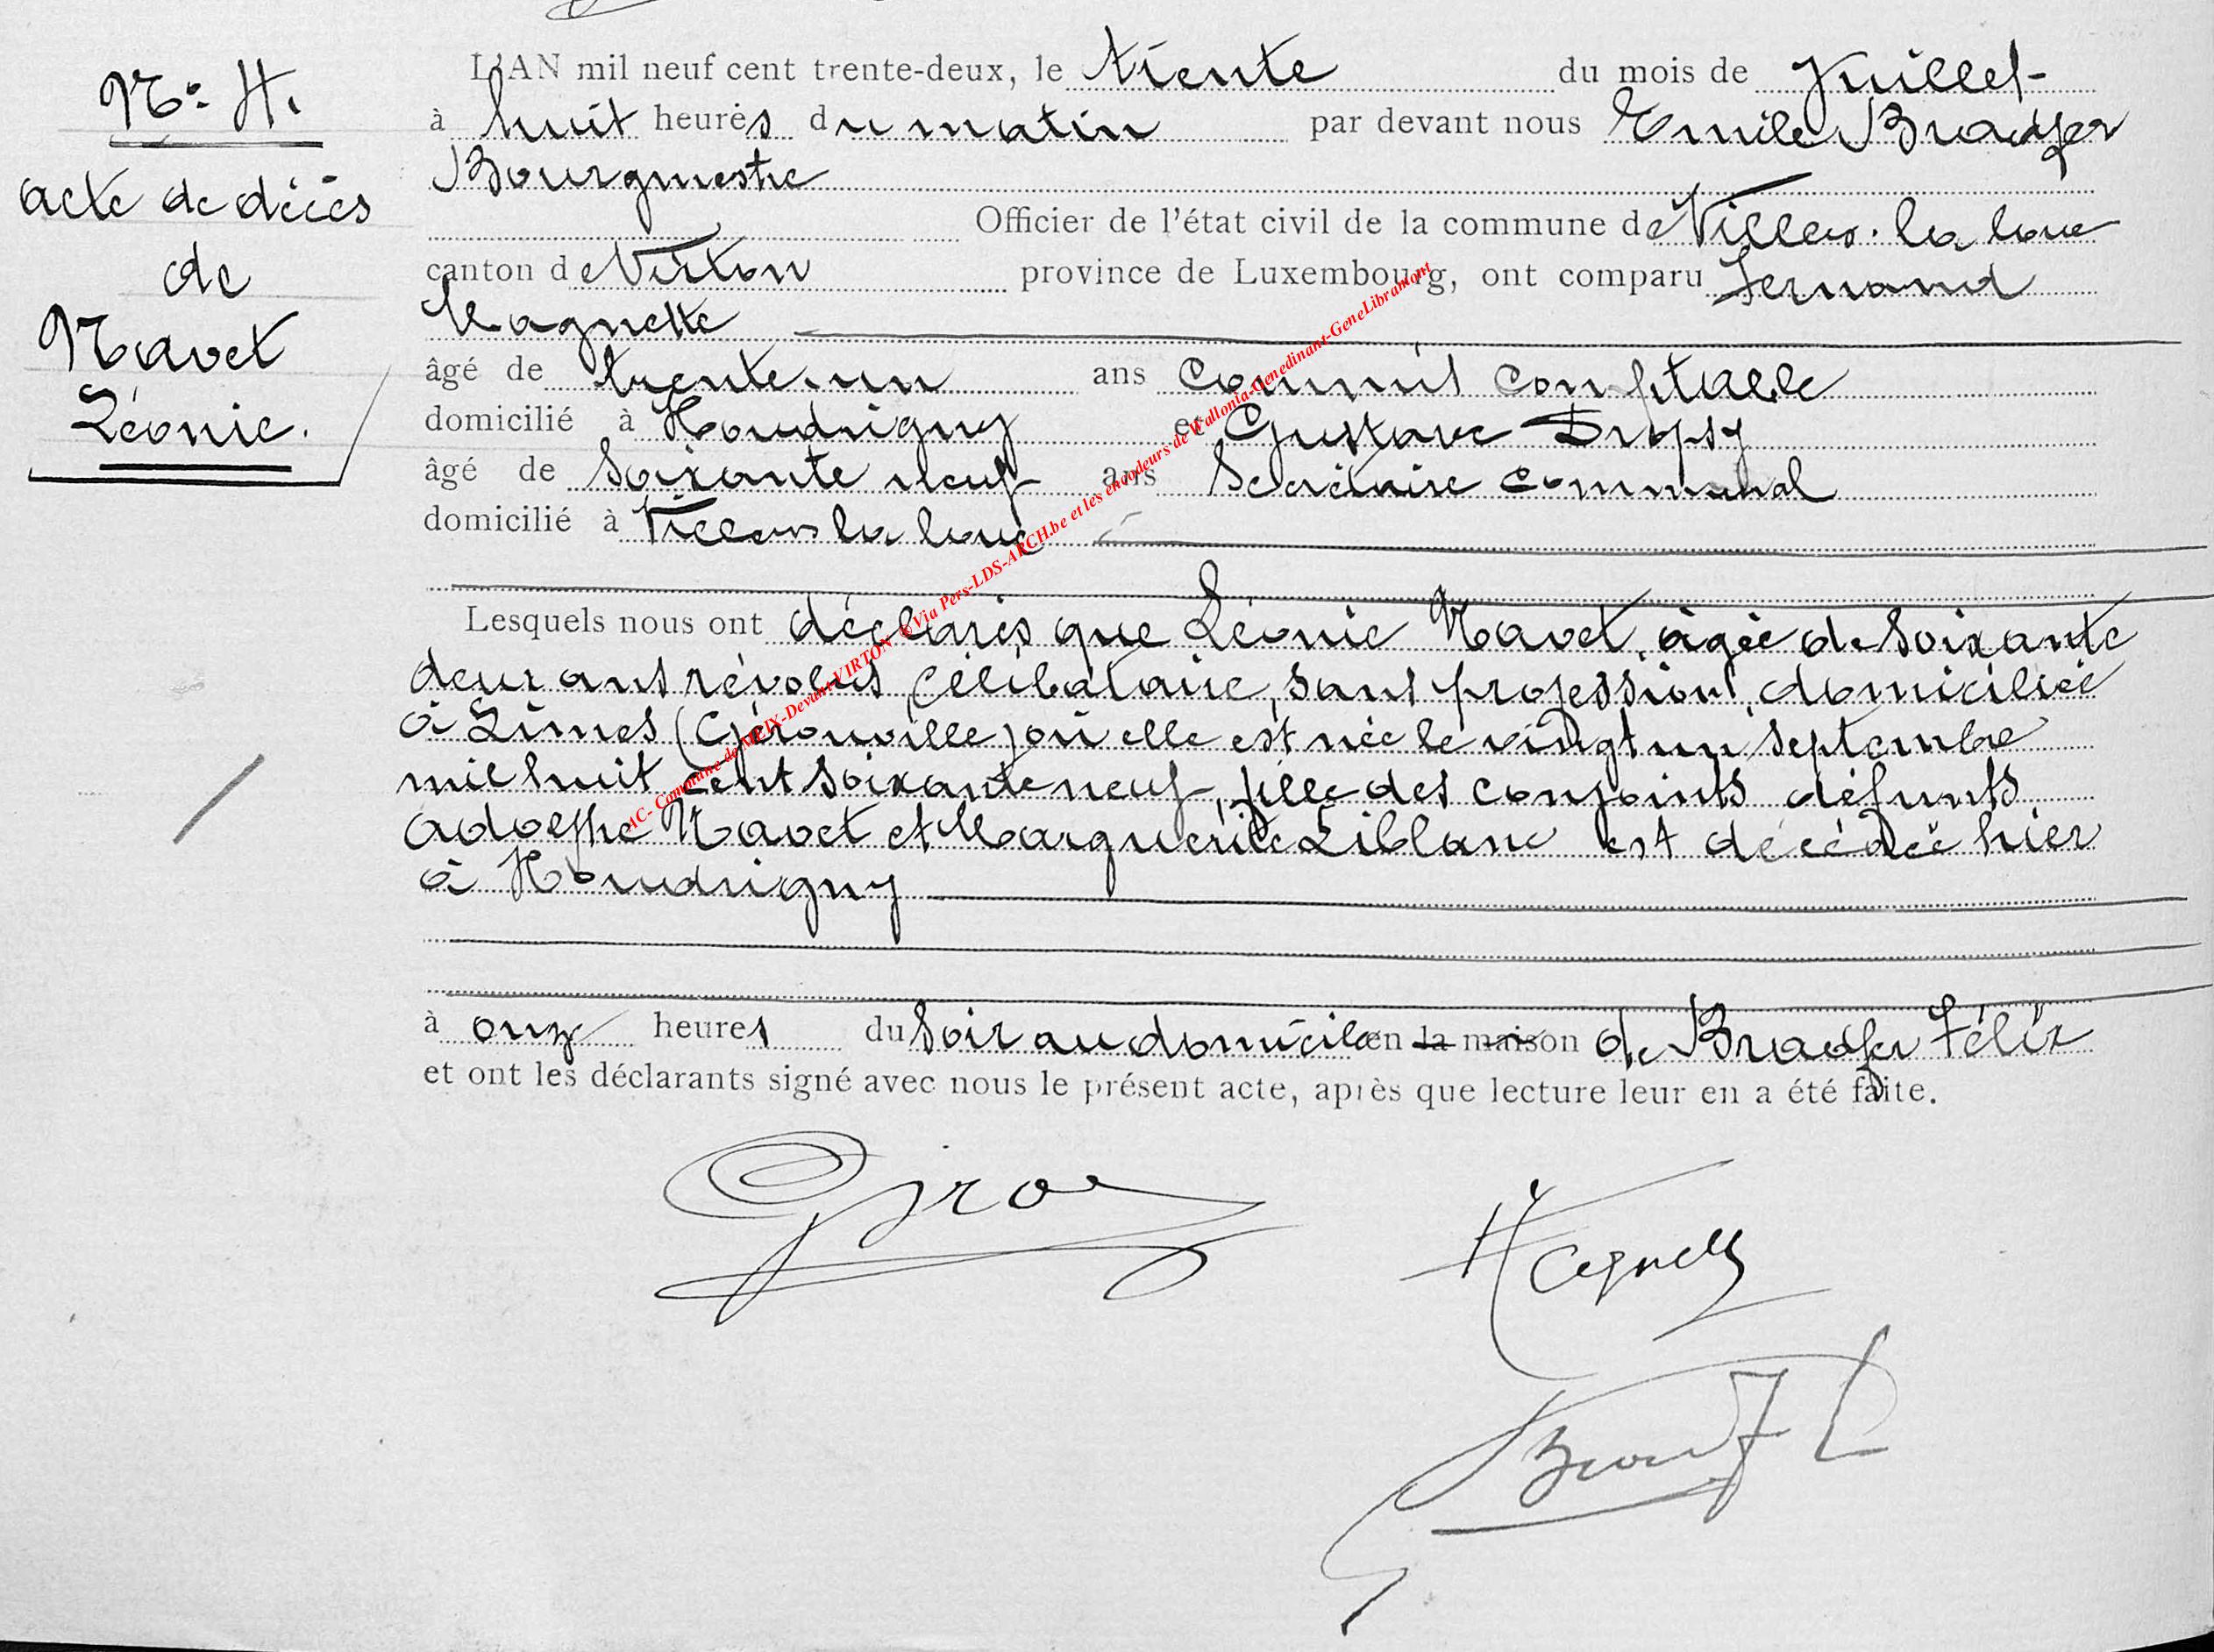 N° 4.
acte de décès
de
Navet
Léonie.
L'AN mil neuf cent trente-deux, le trente du mois de Juillet
à huit heures du matin par devant nous Emile Bradfer
Bourgmestre
Officier de l'état civil de la commune de Villers-la-loue
canton de Virton province de Luxembourg, ont comparu Fernand
Magnette
âgé de trente-un ans Commis comptable
domicilié à Houdrigny et Gustave Dropsy
âgé de soixante neuf ans Secrétaire communal
domicilié à Villers la loue
Lesquels nous ont déclarés que Léonie Navet, âgée de soixante
deux ans révolus, célibataire, sans profession, domiciliée
à Limes (Gérouville) où elle est née le vingt un septembre
mil huit cent soixante neuf, fille des conjoints défunts
Adolphe Navet et Marguerite Liblanc est décédée hier
à Houdrigny
à onze heures du soir au domicile en la maison de Bradfer Félix
et ont les déclarants signé avec nous le présent acte, après que lecture leur en a été faite.
AC- Commune de MEIX-Devant-VIRTON ©Via Pers-LDS-ARCH.be et les encodeurs de Wallonia-Genedinant-GeneLibramont